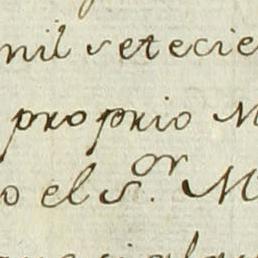 mil setecie
proprio M
o el S.or M